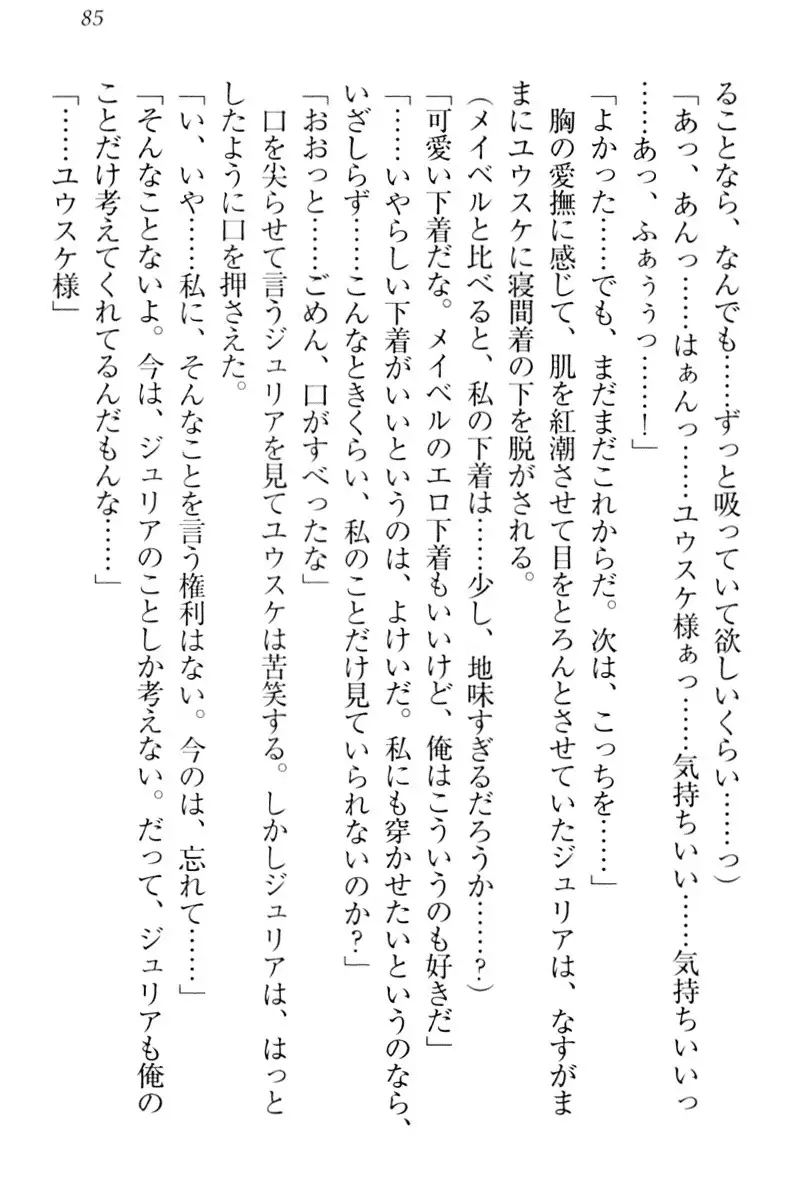 85
ることなら、なんでも……ずっと吸っていて欲しいくらい……っ)
「あっ、あんっ……はぁんっ……ユウスケ様ぁっ……気持ちいい……気持ちいいっ
……あっ、ふぁぅぅっ……！」
「よかった……でも、まだまだこれからだ。次は、こっちを……」
　胸の愛撫に感じて、肌を紅潮させて目をとろんとさせていたジュリアは、なすがま
まにユウスケに寝間着の下を脱がされる。
(メイベルと比べると、私の下着は……少し、地味すぎるだろうか……？)
「可愛い下着だな。メイベルのエロ下着もいいけど、俺はこういうのも好きだ」
「……いやらしい下着がいいというのは、よけいだ。私にも穿かせたいというのなら、
いざしらず……こんなときくらい、私のことだけ見ていられないのか？」
「おおっと……ごめん、口がすべったな」
　口を尖らせて言うジュリアを見てユウスケは苦笑する。しかしジュリアは、はっと
したように口を押さえた。
「い、いや……私に、そんなことを言う権利はない。今のは、忘れて……」
「そんなことないよ。今は、ジュリアのことしか考えない。だって、ジュリアも俺の
ことだけ考えてくれてるんだもんな……」
「……ユウスケ様」